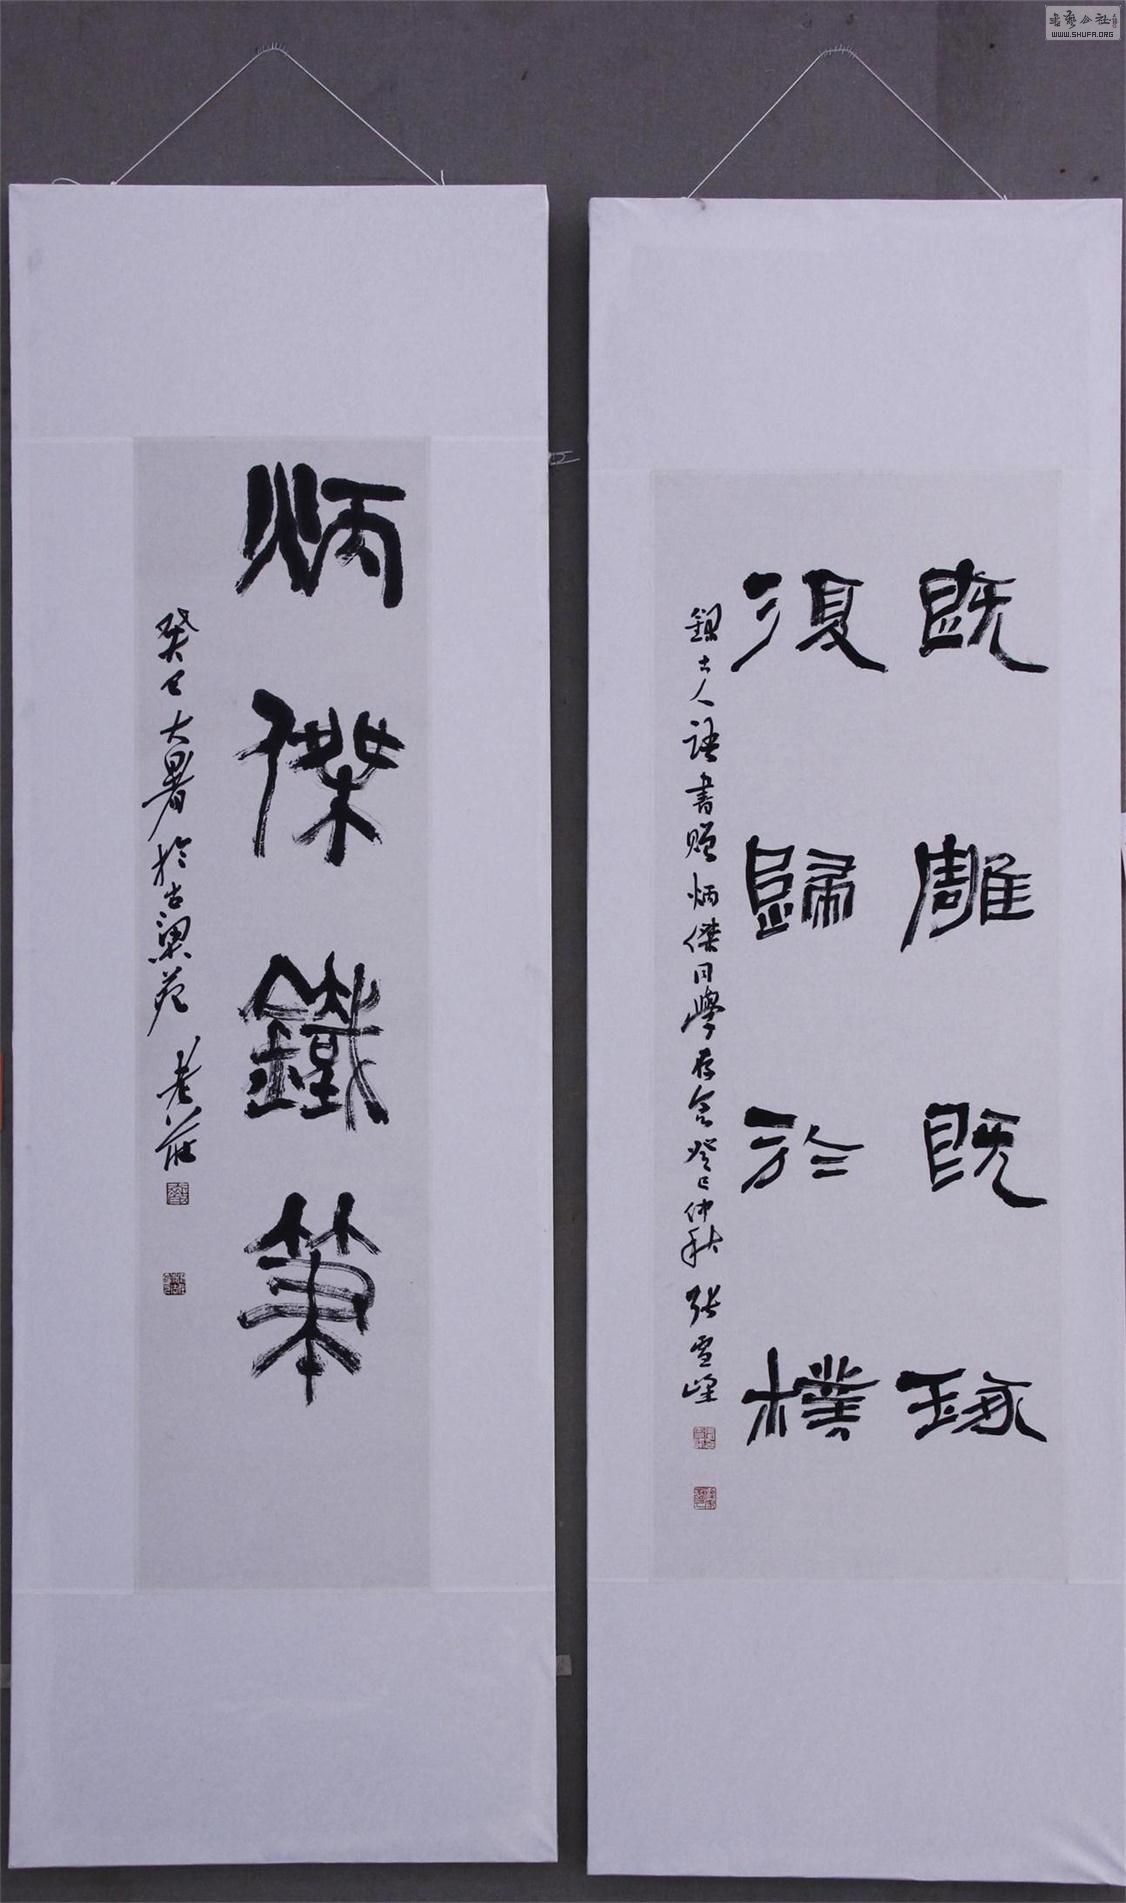 既雕既琢
復歸於樸
錄古人語書贈炳傑同學存念癸巳仲秋 張雪峰
炳傑鐵筆
癸巳大暑於古梁苑 老莊
書藝公社
WWW.SHUFA.ORG